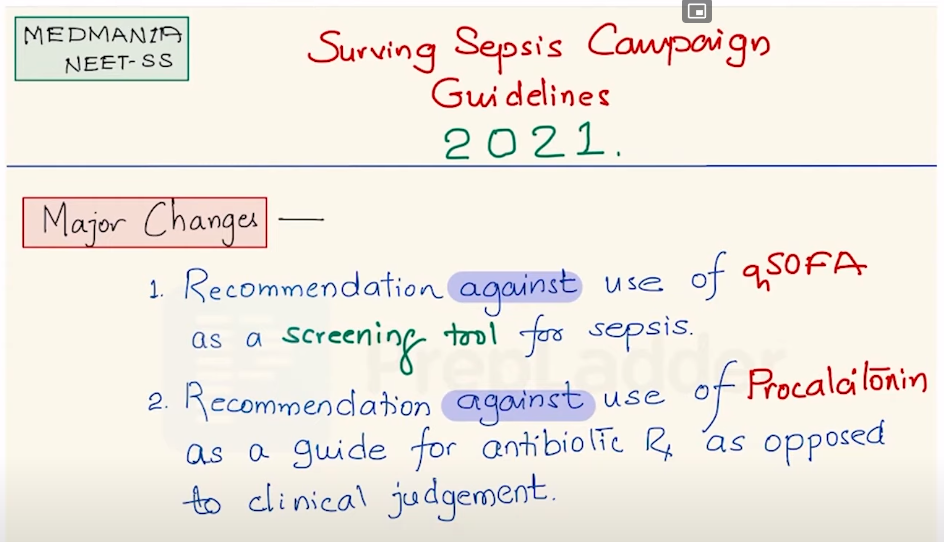 MEDMANIA
NEET-SS
Surving Sepsis Campaign
Guidelines
2021.
Major Changes —
1. Recommendation against use of qSOFA
as a screening tool for sepsis.
2. Recommendation against use of Procalcitonin
as a guide for antibiotic Rx as opposed
to clinical judgement.
PrepLadder